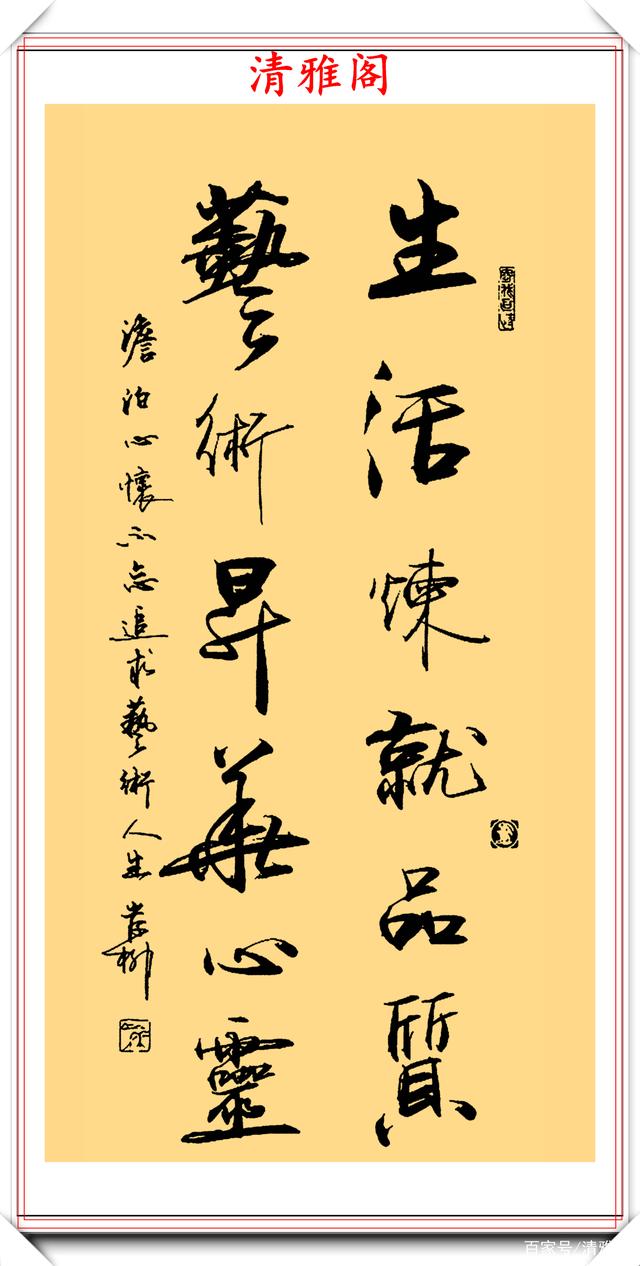 清雅阁
生活煉就品質
藝術昇華心靈
澹泊心懷不忘追求藝術人生
百家号/清雅